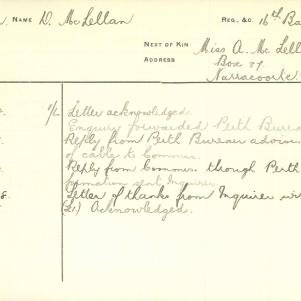 NAME D. McLellan REG. &C. 16th Ba
NEXT OF KIN Miss A. McLell
ADDRESS Box 37.
Narracoorte
1/2 Letter acknowledged.
Enquiry forwarded Perth Bureau
Reply from Perth Bureau advisi
of cable to Commr.
Reply from Commr. though Perth
formation sent Inquirer
8. Letter of thanks from Inquirer
(L1) Acknowledged.